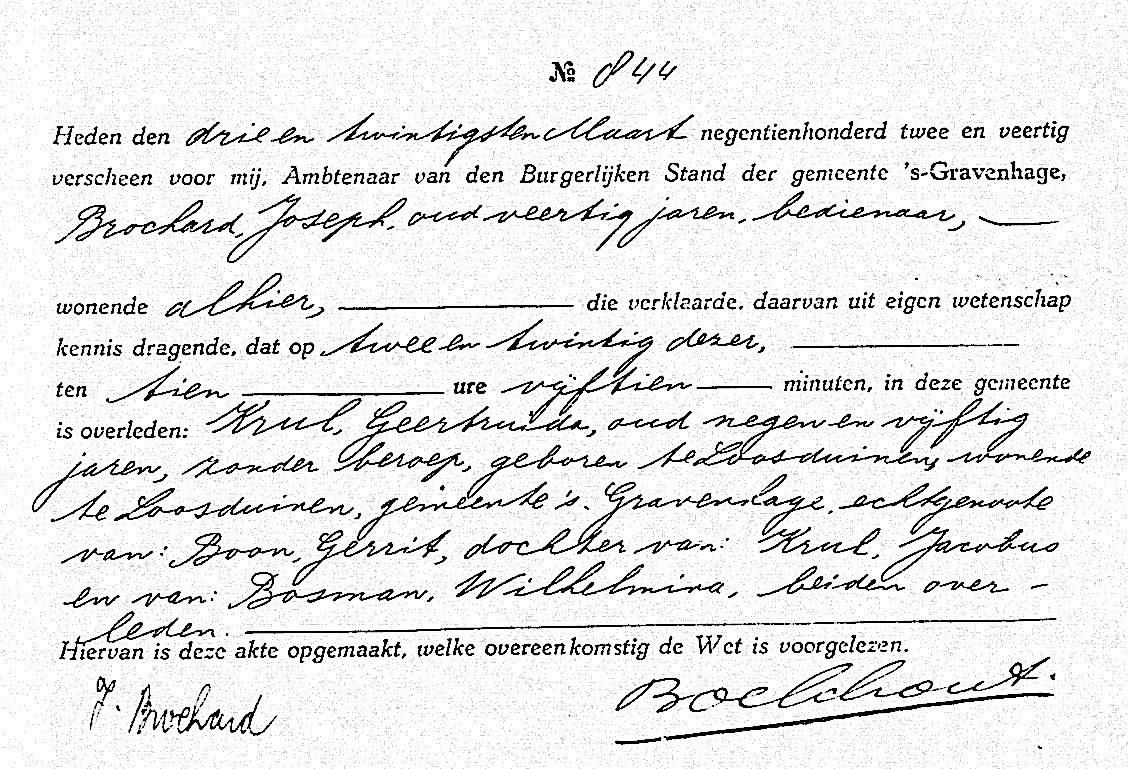 № 844
Heden den drie en twintigsten Maart negentienhonderd twee en veertig
verscheen voor mij, Ambtenaar van den Burgerlijken Stand der gemeente 's-Gravenhage,
Brochard, Joseph, oud veertig jaren, bedienaar,
wonende alhier, die verklaarde, daarvan uit eigen wetenschap
kennis dragende, dat op twee en twintig dezer,
ten tien ure vijftien minuten, in deze gemeente
is overleden: Krul, Geertruida, oud negen en vijftig
jaren, zonder beroep, geboren te Loosduinen, wonende
te Loosduinen, gemeente 's-Gravenhage, echtgenoote
van: Boon, Gerrit, dochter van: Krul, Jacobus
en van: Bosman, Wilhelmina, beiden over-
leden.
Hiervan is deze akte opgemaakt, welke overeenkomstig de Wet is voorgelezen.
J. Brochard